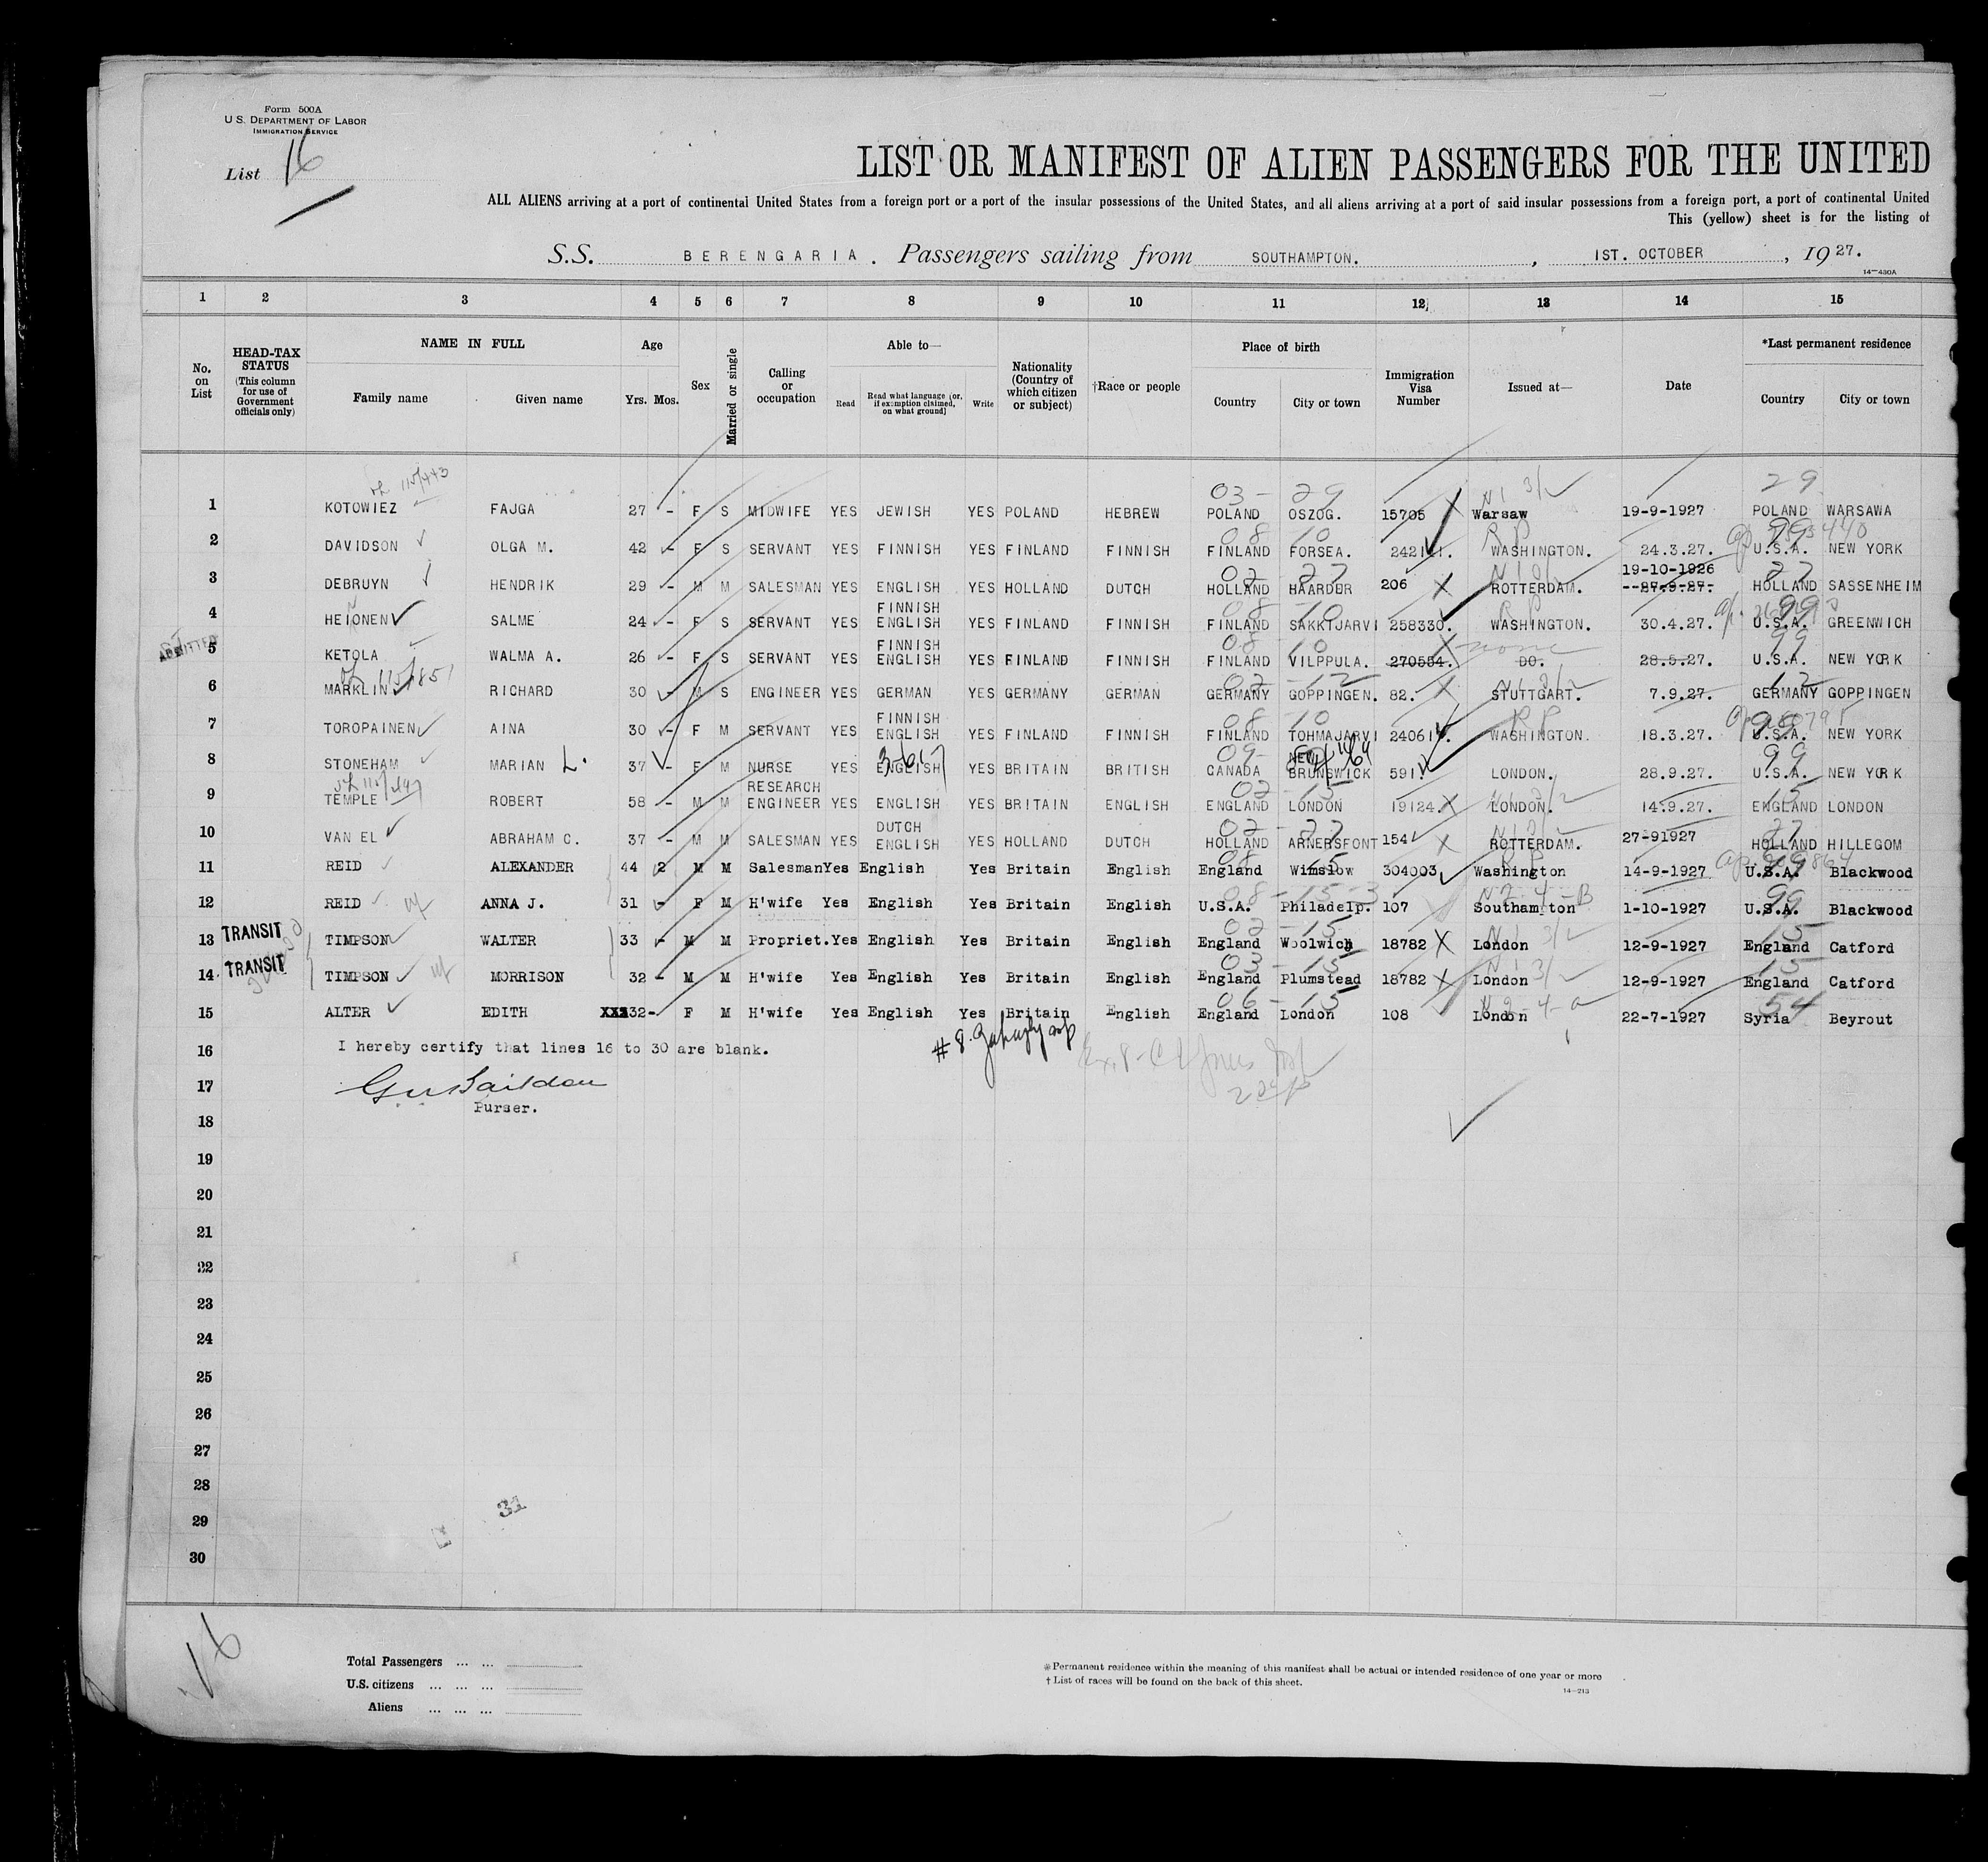 Form 500A
U. S. DEPARTMENT OF LABOR
IMMIGRATION SERVICE
List 16
LIST OR MANIFEST OF ALIEN PASSENGERS FOR THE UNITED
ALL ALIENS arriving at a port of continental United States from a foreign port or a port of the insular possessions of the United States, and all aliens arriving at a port of said insular possessions from a foreign port, a port of continental United
This (yellow) sheet is for the listing of
S.S. BERENGARIA. Passengers sailing from SOUTHAMPTON. , 1ST. OCTOBER , 1927.
14—430A
1 2 3 4 5 6 7 8 9 10 11 12 13 14 15
No. on List
HEAD-TAX STATUS (This column for use of Government officials only)
NAME IN FULL
Family name Given name
Age
Yrs. Mos.
Sex
Married or single
Calling or occupation
Able to—
Read
Read what language (or, if exemption claimed, on what ground)
Write
Nationality (Country of which citizen or subject)
†Race or people
Place of birth
Country City or town
Immigration Visa Number
Issued at—
Date
*Last permanent residence
Country City or town
1 KOTOWIEZ FAJGA 27 - F S MIDWIFE YES JEWISH YES POLAND HEBREW POLAND OSZOG. 15705 Warsaw 19-9-1927 POLAND WARSAWA
2 DAVIDSON OLGA M. 42 - F S SERVANT YES FINNISH YES FINLAND FINNISH FINLAND FORSEA. WASHINGTON. 24.3.27. U.S.A. NEW YORK
3 DEBRUYN HENDRIK 29 - M M SALESMAN YES ENGLISH YES HOLLAND DUTCH HOLLAND HAARDER 206 ROTTERDAM. 19-10-1926 --27.9.27. HOLLAND SASSENHEIM
4 HEIONEN SALME 24 - F S SERVANT YES FINNISH ENGLISH YES FINLAND FINNISH FINLAND SAKKIJARVI 258330. WASHINGTON. 30.4.27. U.S.A. GREENWICH
ADMITTED
5 KETOLA WALMA A. 26 - F S SERVANT YES FINNISH ENGLISH YES FINLAND FINNISH FINLAND VILPPULA. 270554. DO. none 28.5.27. U.S.A. NEW YORK
6 MARKLIN RICHARD 30 - M S ENGINEER YES GERMAN YES GERMANY GERMAN GERMANY GOPPINGEN. 82. STUTTGART. 7.9.27. GERMANY GOPPINGEN
7 TOROPAINEN AINA 30 - F M SERVANT YES FINNISH ENGLISH YES FINLAND FINNISH FINLAND TOHMAJARVI WASHINGTON. 18.3.27. U.S.A. NEW YORK
8 STONEHAM MARIAN L. 37 - F M NURSE YES ENGLISH YES BRITAIN BRITISH CANADA NEW BRUNSWICK 591. LONDON. 28.9.27. U.S.A. NEW YORK
9 TEMPLE ROBERT 58 - M M RESEARCH ENGINEER YES ENGLISH YES BRITAIN ENGLISH ENGLAND LONDON 19124. LONDON. 14.9.27. ENGLAND LONDON
10 VAN EL ABRAHAM C. 37 - M M SALESMAN YES DUTCH ENGLISH YES HOLLAND DUTCH HOLLAND ARNERSFONT 154 ROTTERDAM. 27-91927 HOLLAND HILLEGOM
11 REID ALEXANDER 44 2 M M Salesman Yes English Yes Britain English England Winslow 304003 Washington 14-9-1927 U.S.A. Blackwood
12 REID ANNA J. 31 - F M H'wife Yes English Yes Britain English U.S.A. Philadelp. 107 Southamton 1-10-1927 U.S.A. Blackwood
13 TRANSIT TIMPSON WALTER 33 - M M Propriet. Yes English Yes Britain English England Woolwich 18782 London 12-9-1927 England Catford
14. TRANSIT TIMPSON MORRISON 32 - M M H'wife Yes English Yes Britain English England Plumstead 18782 London 12-9-1927 England Catford
15 ALTER EDITH 32- F M H'wife Yes English Yes Britain English England London 108 London 22-7-1927 Syria Beyrout
16 I hereby certify that lines 16 to 30 are blank.
17
Purser.
18
19
20
21
22
23
24
25
26
27
28
31
29
30
16
Total Passengers ... ...
U.S. citizens ... ... ...
Aliens ... ... ...
*Permanent residence within the meaning of this manifest shall be actual or intended residence of one year or more
†List of races will be found on the back of this sheet.
14—213